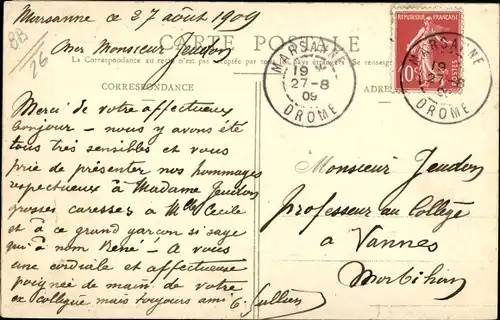 Marsanne ce 27 août 1909
Cher Monsieur Jeudon
CARTE POSTALE
La Correspondance au recto n'est pas acceptée par tous les pays étrangers. Se renseigner
CORRESPONDANCE
Merci de votre affectueux
bonjour – nous y avons été
tous très sensibles et vous
prie de présenter nos hommages
respectueux à Madame Jeudon
grosses caresses à Mlle Cecile
et à ce grand garçon si sage
qui à nom René – A vous
une cordiale et affectueuse
poignée de main de votre
ex collègue mais toujours ami
MARSANNE
19
27-8
09
DROME
RÉPUBLIQUE FRANÇAISE
10
POSTES
MARSANNE
19
27-8
DROME
Monsieur Jeudon
professeur au Collège
à Vannes
Morbihan